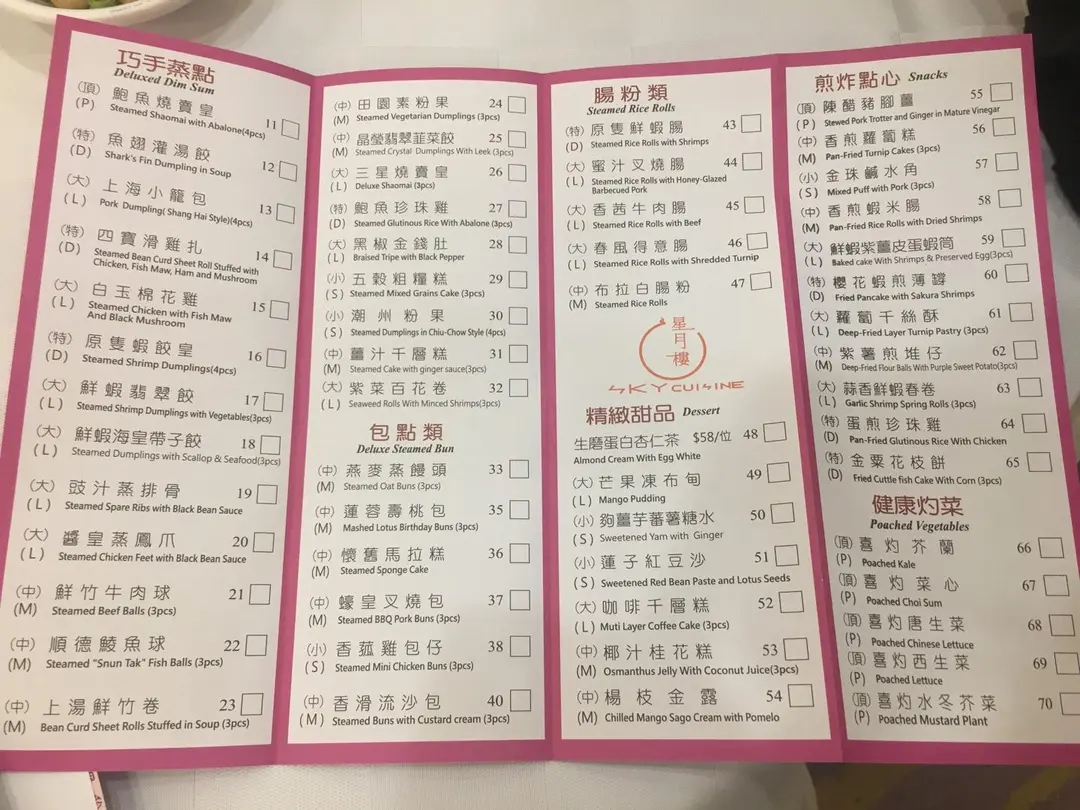 巧手蒸點
Deluxed Dim Sum
(頂) 鮑魚燒賣皇 11
(P) Steamed Shaomai with Abalone(4pcs)
(特) 魚翅灌湯餃 12
(D) Shark's Fin Dumpling in Soup
(大) 上海小籠包 13
(L) Pork Dumpling( Shang Hai Style)(4pcs)
(特) 四寶滑雞扎 14
(D) Steamed Bean Curd Sheet Roll Stuffed with
Chicken, Fish Maw, Ham and Mushroom
(大) 白玉棉花雞 15
(L) Steamed Chicken with Fish Maw
And Black Mushroom
(特) 原隻蝦餃皇 16
(D) Steamed Shrimp Dumplings(4pcs)
(大) 鮮蝦翡翠餃 17
(L) Steamed Shrimp Dumplings with Vegetables(3pcs)
(大) 鮮蝦海皇帶子餃 18
(L) Steamed Dumplings with Scallop & Seafood(3pcs)
(大) 豉汁蒸排骨 19
(L) Steamed Spare Ribs with Black Bean Sauce
(大) 醬皇蒸鳳爪 20
(L) Steamed Chicken Feet with Black Bean Sauce
(中) 鮮竹牛肉球 21
(M) Steamed Beef Balls (3pcs)
(中) 順德鯪魚球 22
(M) Steamed "Snun Tak" Fish Balls (3pcs)
(中) 上湯鮮竹卷 23
(M) Bean Curd Sheet Rolls Stuffed in Soup (3pcs)
(中) 田園素粉果 24
(M) Steamed Vegetarian Dumplings (3pcs)
(中) 晶瑩翡翠韮菜餃 25
(M) Steamed Crystal Dumplings With Leek (3pcs)
(大) 三星燒賣皇 26
(L) Deluxe Shaomai (3pcs)
(特) 鮑魚珍珠雞 27
(D) Steamed Glutinous Rice With Abalone (3pcs)
(大) 黑椒金錢肚 28
(L) Braised Tripe with Black Pepper
(小) 五穀粗糧糕 29
(S) Steamed Mixed Grains Cake (3pcs)
(小) 潮州粉果 30
(S) Steamed Dumplings in Chiu-Chow Style (4pcs)
(中) 薑汁千層糕 31
(M) Steamed Cake with ginger sauce(3pcs)
(大) 紫菜百花卷 32
(L) Seaweed Rolls With Minced Shrimps(3pcs)
包點類
Deluxe Steamed Bun
(中) 燕麥蒸饅頭 33
(M) Steamed Oat Buns (3pcs)
(中) 蓮蓉壽桃包 35
(M) Mashed Lotus Birthday Buns (3pcs)
(中) 懷舊馬拉糕 36
(M) Steamed Sponge Cake
(中) 蠔皇叉燒包 37
(M) Steamed BBQ Pork Buns (3pcs)
(小) 香菰雞包仔 38
(S) Steamed Mini Chicken Buns (3pcs)
(中) 香滑流沙包 40
(M) Steamed Buns with Custard cream (3pcs)
腸粉類
Steamed Rice Rolls
(特) 原隻鮮蝦腸 43
(D) Steamed Rice Rolls with Shrimps
(大) 蜜汁叉燒腸 44
(L) Steamed Rice Rolls with Honey-Glazed
Barbecued Pork
(大) 香茜牛肉腸 45
(L) Steamed Rice Rolls with Beef
(大) 春風得意腸 46
(L) Steamed Rice Rolls with Shredded Turnip
(中) 布拉白腸粉 47
(M) Steamed Rice Rolls
星月樓
SKY CUISINE
精緻甜品 Dessert
生磨蛋白杏仁茶 $58/位 48
Almond Cream With Egg White
(大) 芒果凍布甸 49
(L) Mango Pudding
(小) 夠薑芋蕃薯糖水 50
(S) Sweetened Yam with Ginger
(小) 蓮子紅豆沙 51
(S) Sweetened Red Bean Paste and Lotus Seeds
(大) 咖啡千層糕 52
(L) Muti Layer Coffee Cake (3pcs)
(中) 椰汁桂花糕 53
(M) Osmanthus Jelly With Coconut Juice(3pcs)
(中) 楊枝金露 54
(M) Chilled Mango Sago Cream with Pomelo
煎炸點心 Snacks
(頂) 陳醋豬腳薑 55
(P) Stewed Pork Trotter and Ginger in Mature Vinegar
(中) 香煎蘿蔔糕 56
(M) Pan-Fried Turnip Cakes (3pcs)
(小) 金珠鹹水角 57
(S) Mixed Puff with Pork (3pcs)
(中) 香煎蝦米腸 58
(M) Pan-Fried Rice Rolls with Dried Shrimps
(大) 鮮蝦紫薑皮蛋蝦筒 59
(L) Baked cake With Shrimps & Preserved Egg(3pcs)
(特) 櫻花蝦煎薄罉 60
(D) Fried Pancake with Sakura Shrimps
(大) 蘿蔔千絲酥 61
(L) Deep-Fried Layer Turnip Pastry (3pcs)
(中) 紫薯煎堆仔 62
(M) Deep-Fried Flour Balls With Purple Sweet Potato(3pcs)
(大) 蒜香鮮蝦春卷 63
(L) Garlic Shrimp Spring Rolls (3pcs)
(特) 蛋煎珍珠雞 64
(D) Pan-Fried Glutinous Rice With Chicken
(特) 金粟花枝餅 65
(D) Fried Cuttle fish Cake With Corn (3pcs)
健康灼菜
Poached Vegetables
(頂) 喜灼芥蘭 66
(P) Poached Kale
(頂) 喜灼菜心 67
(P) Poached Choi Sum
(頂) 喜灼唐生菜 68
(P) Poached Chinese Lettuce
(頂) 喜灼西生菜 69
(P) Poached Lettuce
(頂) 喜灼水冬芥菜 70
(P) Poached Mustard Plant